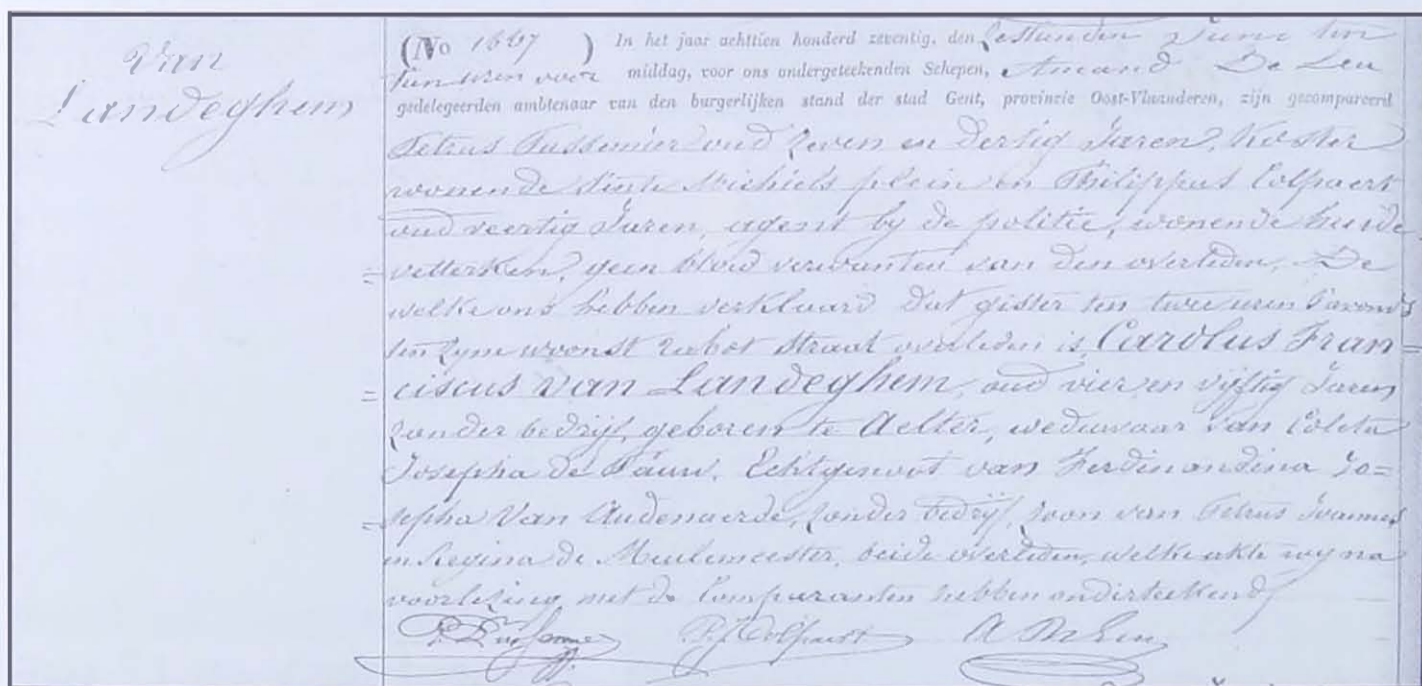 Van
Landeghem
(No 1667 ) In het jaar achttien honderd zeventig, den sestienden Juni ten
tien uren voor middag, voor ons ondergeteekenden Schepen, Amand De Leu
gedelegeerden ambtenaar van den burgerlijken stand der stad Gent, provincie Oost-Vlaanderen, zijn gecompareerd
Petrus oud zeven en dertig Jaren, Koster
wonende Sinte Michiels plein en Philippus Colpaert
oud veertig Jaren, agent by de politie, wonende huide
= vetterken, geen bloed verwanten van den overleden. De
welke ons hebben verklaard dat gister ten twee uren
ten zyne woonst rabot straat overleden is, Carolus Fran =
= ciscus van Landeghem, oud vier en vijftig Jaren
zonder bedrijf, geboren te Aelter, weduwaar van Coleta
Josepha de Pauw. Echtgenoot van Ferdinandina Jo=
= sepha Van Audenaerde, zonder bedrijf, zoon van Petrus Joannes
en Regina de Meulemeester, beide overleden, welke akte wy na
voorlezing met de Comparanten hebben onderteekend
P. J. Colpaert A De Leu